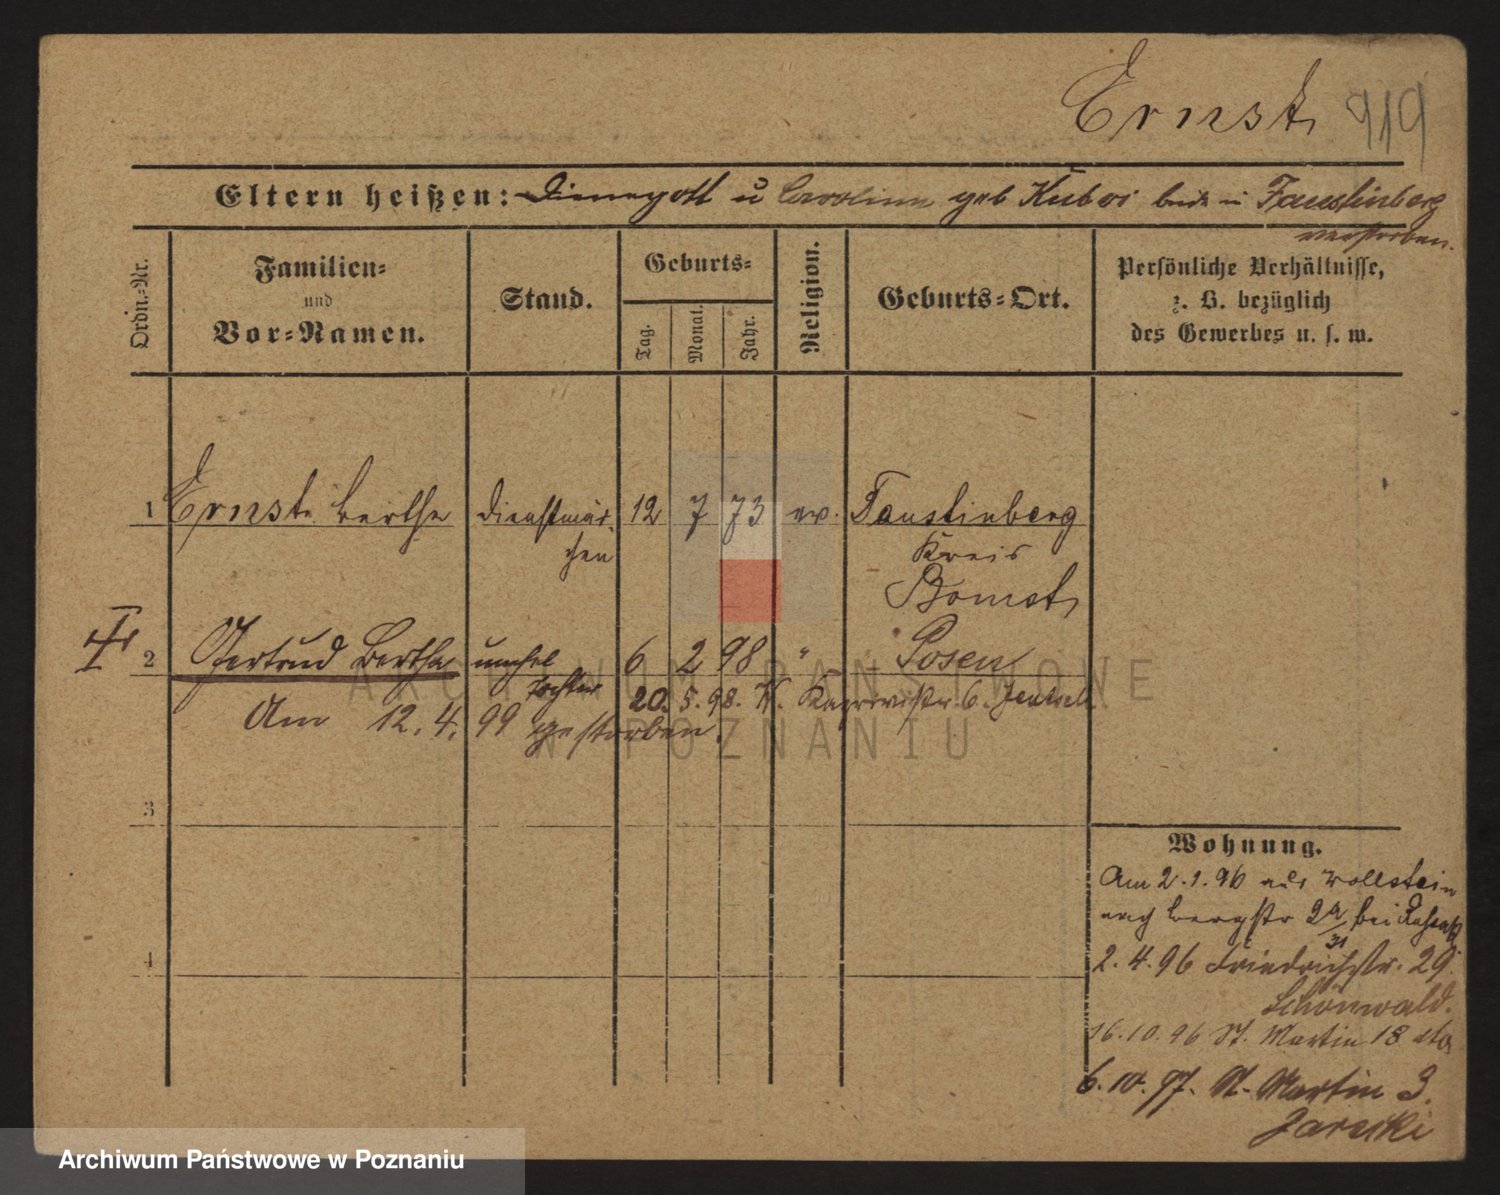 Ernst 919
Eltern heißen: Dienegott u Caroline geb Kuboi beide in Faustinberg
verstorben.
Ordn.-Nr.
Familien-
und
Vor-Namen.
Stand.
Geburts-
Tag.
Monat.
Jahr.
Religion.
Geburts-Ort.
Persönliche Verhältnisse,
z. B. bezüglich
des Gewerbes u. s. w.
1 Ernst Berthe Dienstmäd- 12 7 73 ev. Faustinberg
chen Kreis
Bomst
2 Gertrud Bertha unehel 6 2 98 " Posen
Tochter 20. 5. 98. 6.
Am 12. 4. 99 gestorben.
3
4
Wohnung.
Am 2.1.96 aus Wollstein
nach Bergstr 2a bei
2.4.96 Friedrichstr. 29.
31
Schönwald.
16.10.96 St. Martin 18
6.10.97. St. Martin 3.
Zareski
ARCHIWUM PAŃSTWOWE
W POZNANIU
Archiwum Państwowe w Poznaniu